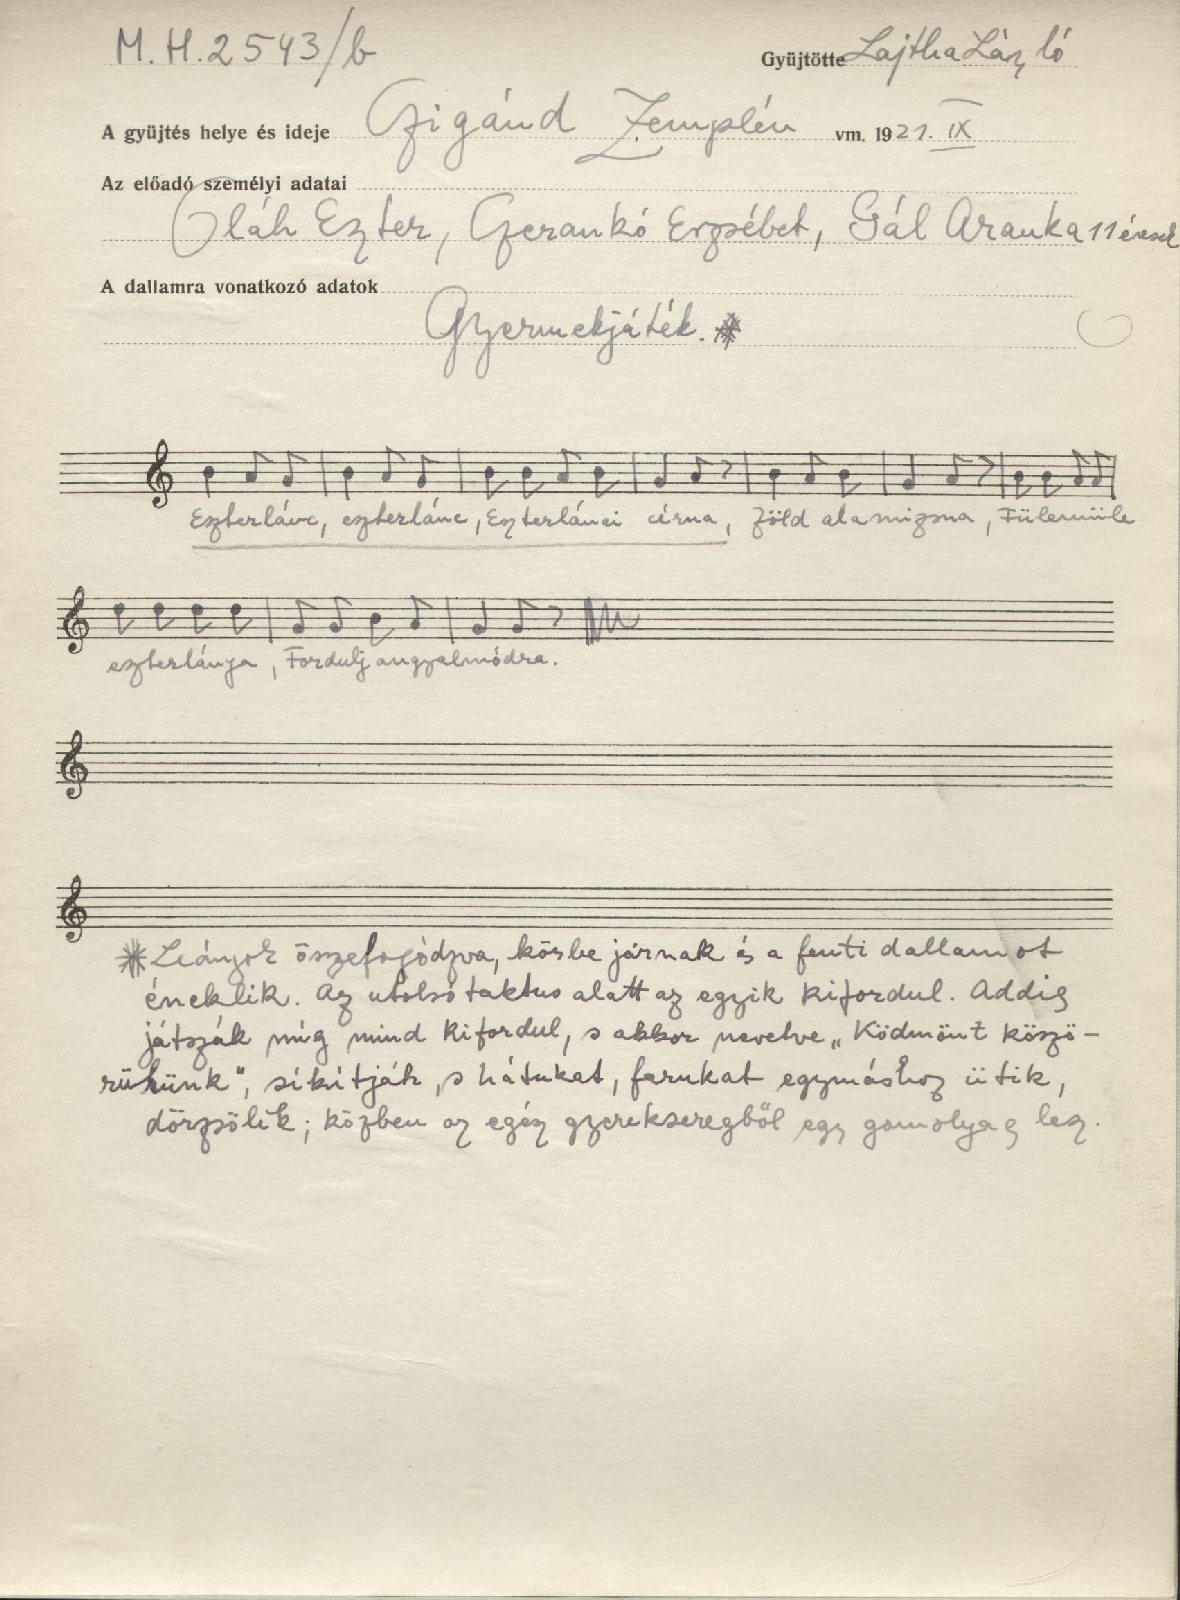 M.H.2543/b
Gyüjtötte Lajtha László
A gyüjtés helye és ideje Czigánd Zemplén vm. 1921. IX
Az előadó személyi adatai
Oláh Eszter, Czerankó Erzsébet, Gál Aranka 11 évesek
A dallamra vonatkozó adatok
Gyermekjáték. *
Eszterlánc, eszterlánc, Eszterlánci cérna, Zöld alamizsna, Fülemüle
eszterlánja, Fordulj angyalmódra.
* Leányok összefogódzva, körbe járnak és a fenti dallamot
éneklik. Az utolsó taktus alatt az egyik kifordul. Addig
játszák míg mind kifordul, s akkor nevetve „Ködmönt köszö-
rülünk", síkítják, s hátukat, farukat egymáshoz ütik,
dörzsölik; közben az egész gyerekseregből egy gomolyag lesz.